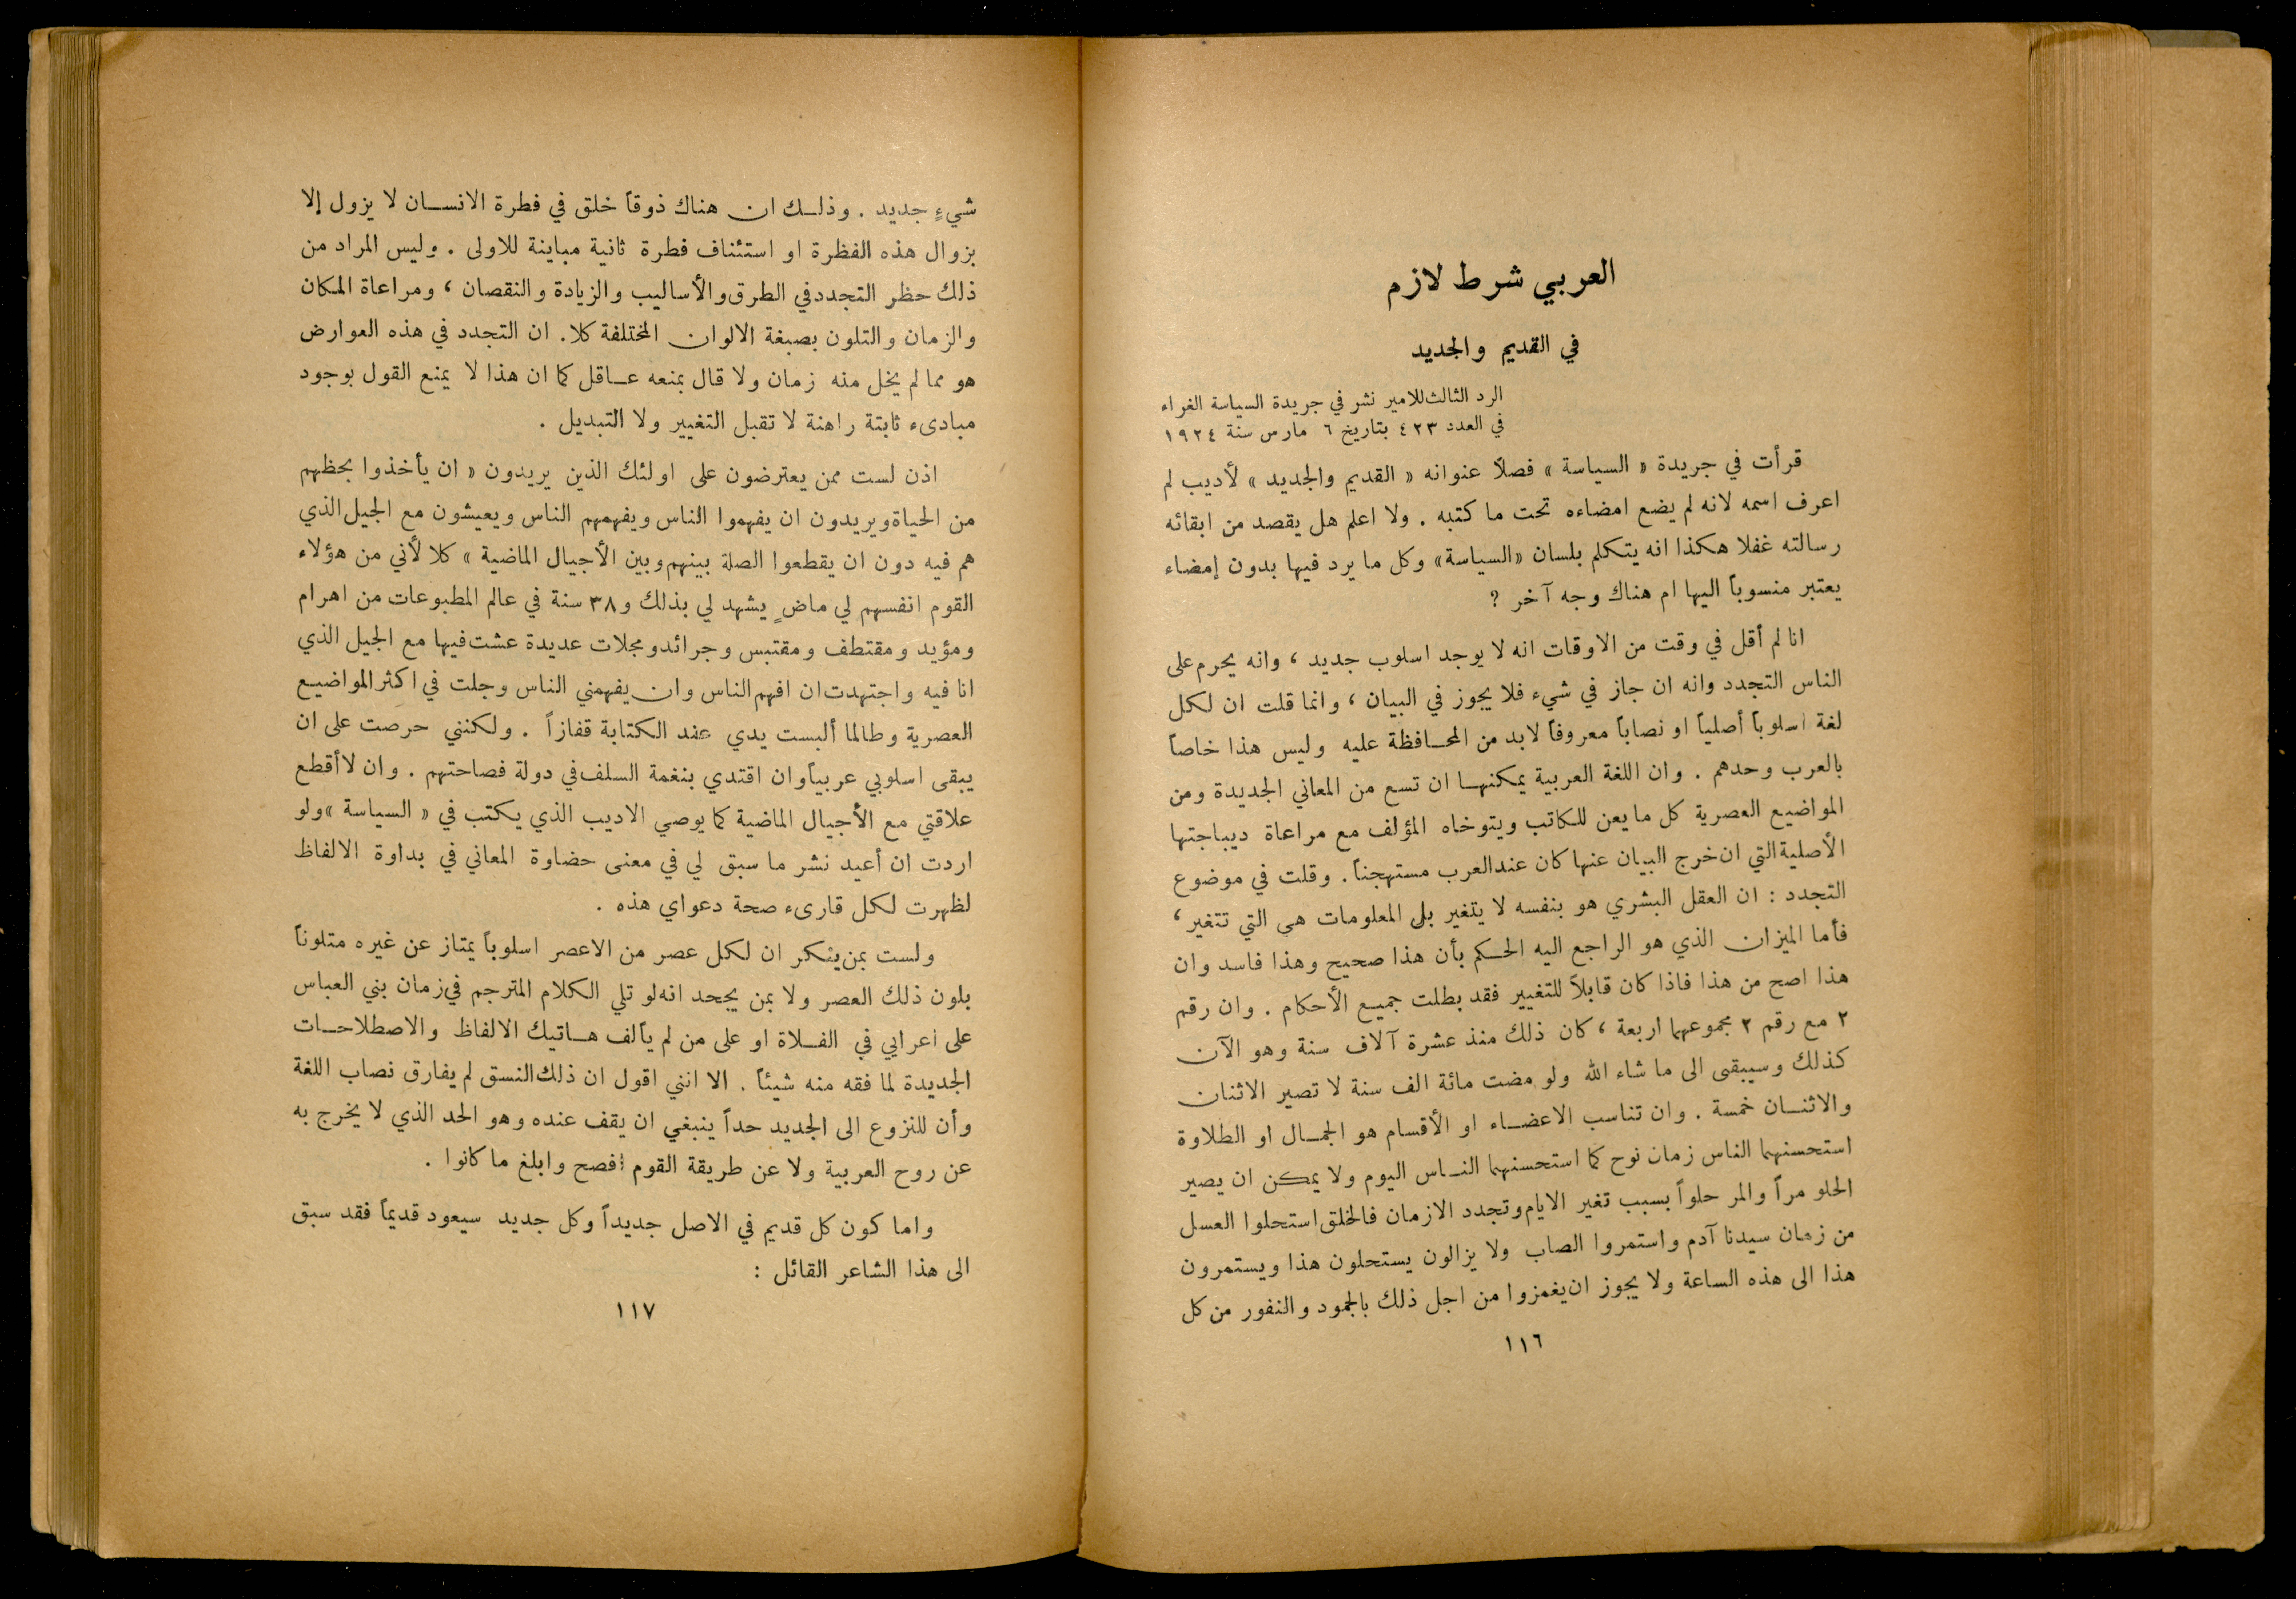 العربي شرط لازم
في القديم والجديد
الرد الثالث للامير نشر في جريدة السياسة الغراء
في العدد ٤٢٣ بتاريخ ٦ مارس سنة ١٩٢٤
قرأت في جريدة « السياسة » فصلاً عنوانه « القديم والجديد » لأديب لم
اعرف اسمه لانه لم يضع امضاءه تحت ما كتبه . ولا اعلم هل يقصد من ابقائه
رسالته غفلا هكذا انه يتكلم بلسان «السياسة» وكل ما يرد فيها بدون إمضاء
يعتبر منسوباً اليها ام هناك وجه آخر ?
انا لم أقل في وقت من الاوقات انه لا يوجد اسلوب جديد ، وانه يحرم على
الناس التجدد وانه ان جاز في شيء فلا يجوز في البيان ، وانما قلت ان لكل
لغة اسلوباً أصلياً او نصاباً معروفاً لابد من المحافظة عليه وليس هذا خاصاً
بالعرب وحدهم . وان اللغة العربية يمكنها ان تسع من المعاني الجديدة ومن
المواضيع العصرية كل ما يعن للكاتب ويتوخاه المؤلف مع مراعاة ديباجتها
الأصلية التي ان خرج البيان عنها كان عند العرب مستهجناً . وقلت في موضوع
التجدد : ان العقل البشري هو بنفسه لا يتغير بل المعلومات هي التي تتغير ،
فأما الميزان الذي هو الراجع اليه الحكم بأن هذا صحيح وهذا فاسد وان
هذا اصح من هذا فاذا كان قابلاً للتغيير فقد بطلت جميع الأحكام . وان رقم
٢ مع رقم ٢ مجموعهما اربعة ، كان ذلك منذ عشرة آلاف سنة وهو الآن
كذلك وسيبقى الى ما شاء الله ولو مضت مائة الف سنة لا تصير الاثنان
والاثنان خمسة . وان تناسب الاعضاء او الأقسام هو الجمال او الطلاوة
استحسنهما الناس زمان نوح كما استحسنهما الناس اليوم ولا يمكن ان يصير
الحلو مراً والمر حلواً بسبب تغير الايام وتجدد الازمان فالخلق استحلوا العسل
من زمان سيدنا آدم واستمروا الصاب ولا يزالون يستحلون هذا ويستمرون
هذا الى هذه الساعة ولا يجوز ان يغمزوا من اجل ذلك بالجمود والنفور من كل
١١٦
شيءٍ جديد . وذلك ان هناك ذوقاً خلق في فطرة الانسان لا يزول إلا
بزوال هذه الفظرة او استئناف فطرة ثانية مباينة للاولى . وليس المراد من
ذلك حظر التجدد في الطرق والأساليب والزيادة والنقصان ، ومراعاة المكان
والزمان والتلون بصبغة الالوان المختلفة كلا . ان التجدد في هذه العوارض
هو مما لم يخل منه زمان ولا قال بمنعه عاقل كما ان هذا لا يمنع القول بوجود
مبادىء ثابتة راهنة لا تقبل التغيير ولا التبديل .
اذن لست ممن يعترضون على اولئك الذين يريدون « ان يأخذوا بحظهم
من الحياة ويريدون ان يفهموا الناس ويفهمهم الناس ويعيشون مع الجيل الذي
هم فيه دون ان يقطعوا الصلة بينهم وبين الأجيال الماضية » كلا لأني من هؤلاء
القوم انفسهم لي ماضٍ يشهد لي بذلك و٣٨ سنة في عالم المطبوعات من اهرام
ومؤيد ومقتطف ومقتبس وجرائد ومجلات عديدة عشت فيها مع الجيل الذي
انا فيه واجتهدت ان افهم الناس وان يفهمني الناس وجلت في اكثر المواضيع
العصرية وطالما ألبست يدي عند الكتابة قفازاً . ولكنني حرصت على ان
يبقى اسلوبي عربياً وان اقتدي بنغمة السلف في دولة فصاحتهم . وان لا أقطع
علاقتي مع الأجيال الماضية كما يوصي الاديب الذي يكتب في « السياسة » ولو
اردت ان أعيد نشر ما سبق لي في معنى حضاوة المعاني في بداوة الالفاظ
لظهرت لكل قارىء صحة دعواي هذه .
ولست بمن ينكر ان لكل عصر من الاعصر اسلوباً يمتاز عن غيره متلوناً
بلون ذلك العصر ولا بمن يجحد انه لو تلي الكلام المترجم في زمان بني العباس
على اعرابي في الفلاة او على من لم يألف هاتيك الالفاظ والاصطلاحات
الجديدة لما فقه منه شيئاً . الا انني اقول ان ذلك النسق لم يفارق نصاب اللغة
وأن للنزوع الى الجديد حداً ينبغي ان يقف عنده وهو الحد الذي لا يخرج به
عن روح العربية ولا عن طريقة القوم افصح وابلغ ما كانوا .
واما كون كل قديم في الاصل جديداً وكل جديد سيعود قديماً فقد سبق
الى هذا الشاعر القائل :
١١٧